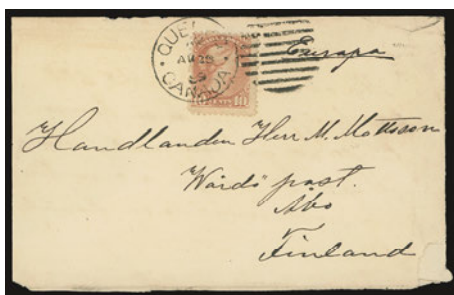 QUE
AU 25
CANADA
CENTS 10
Europa
Handlanden Herr M. Mattsson
Wärdö post.
Åbo
Finland